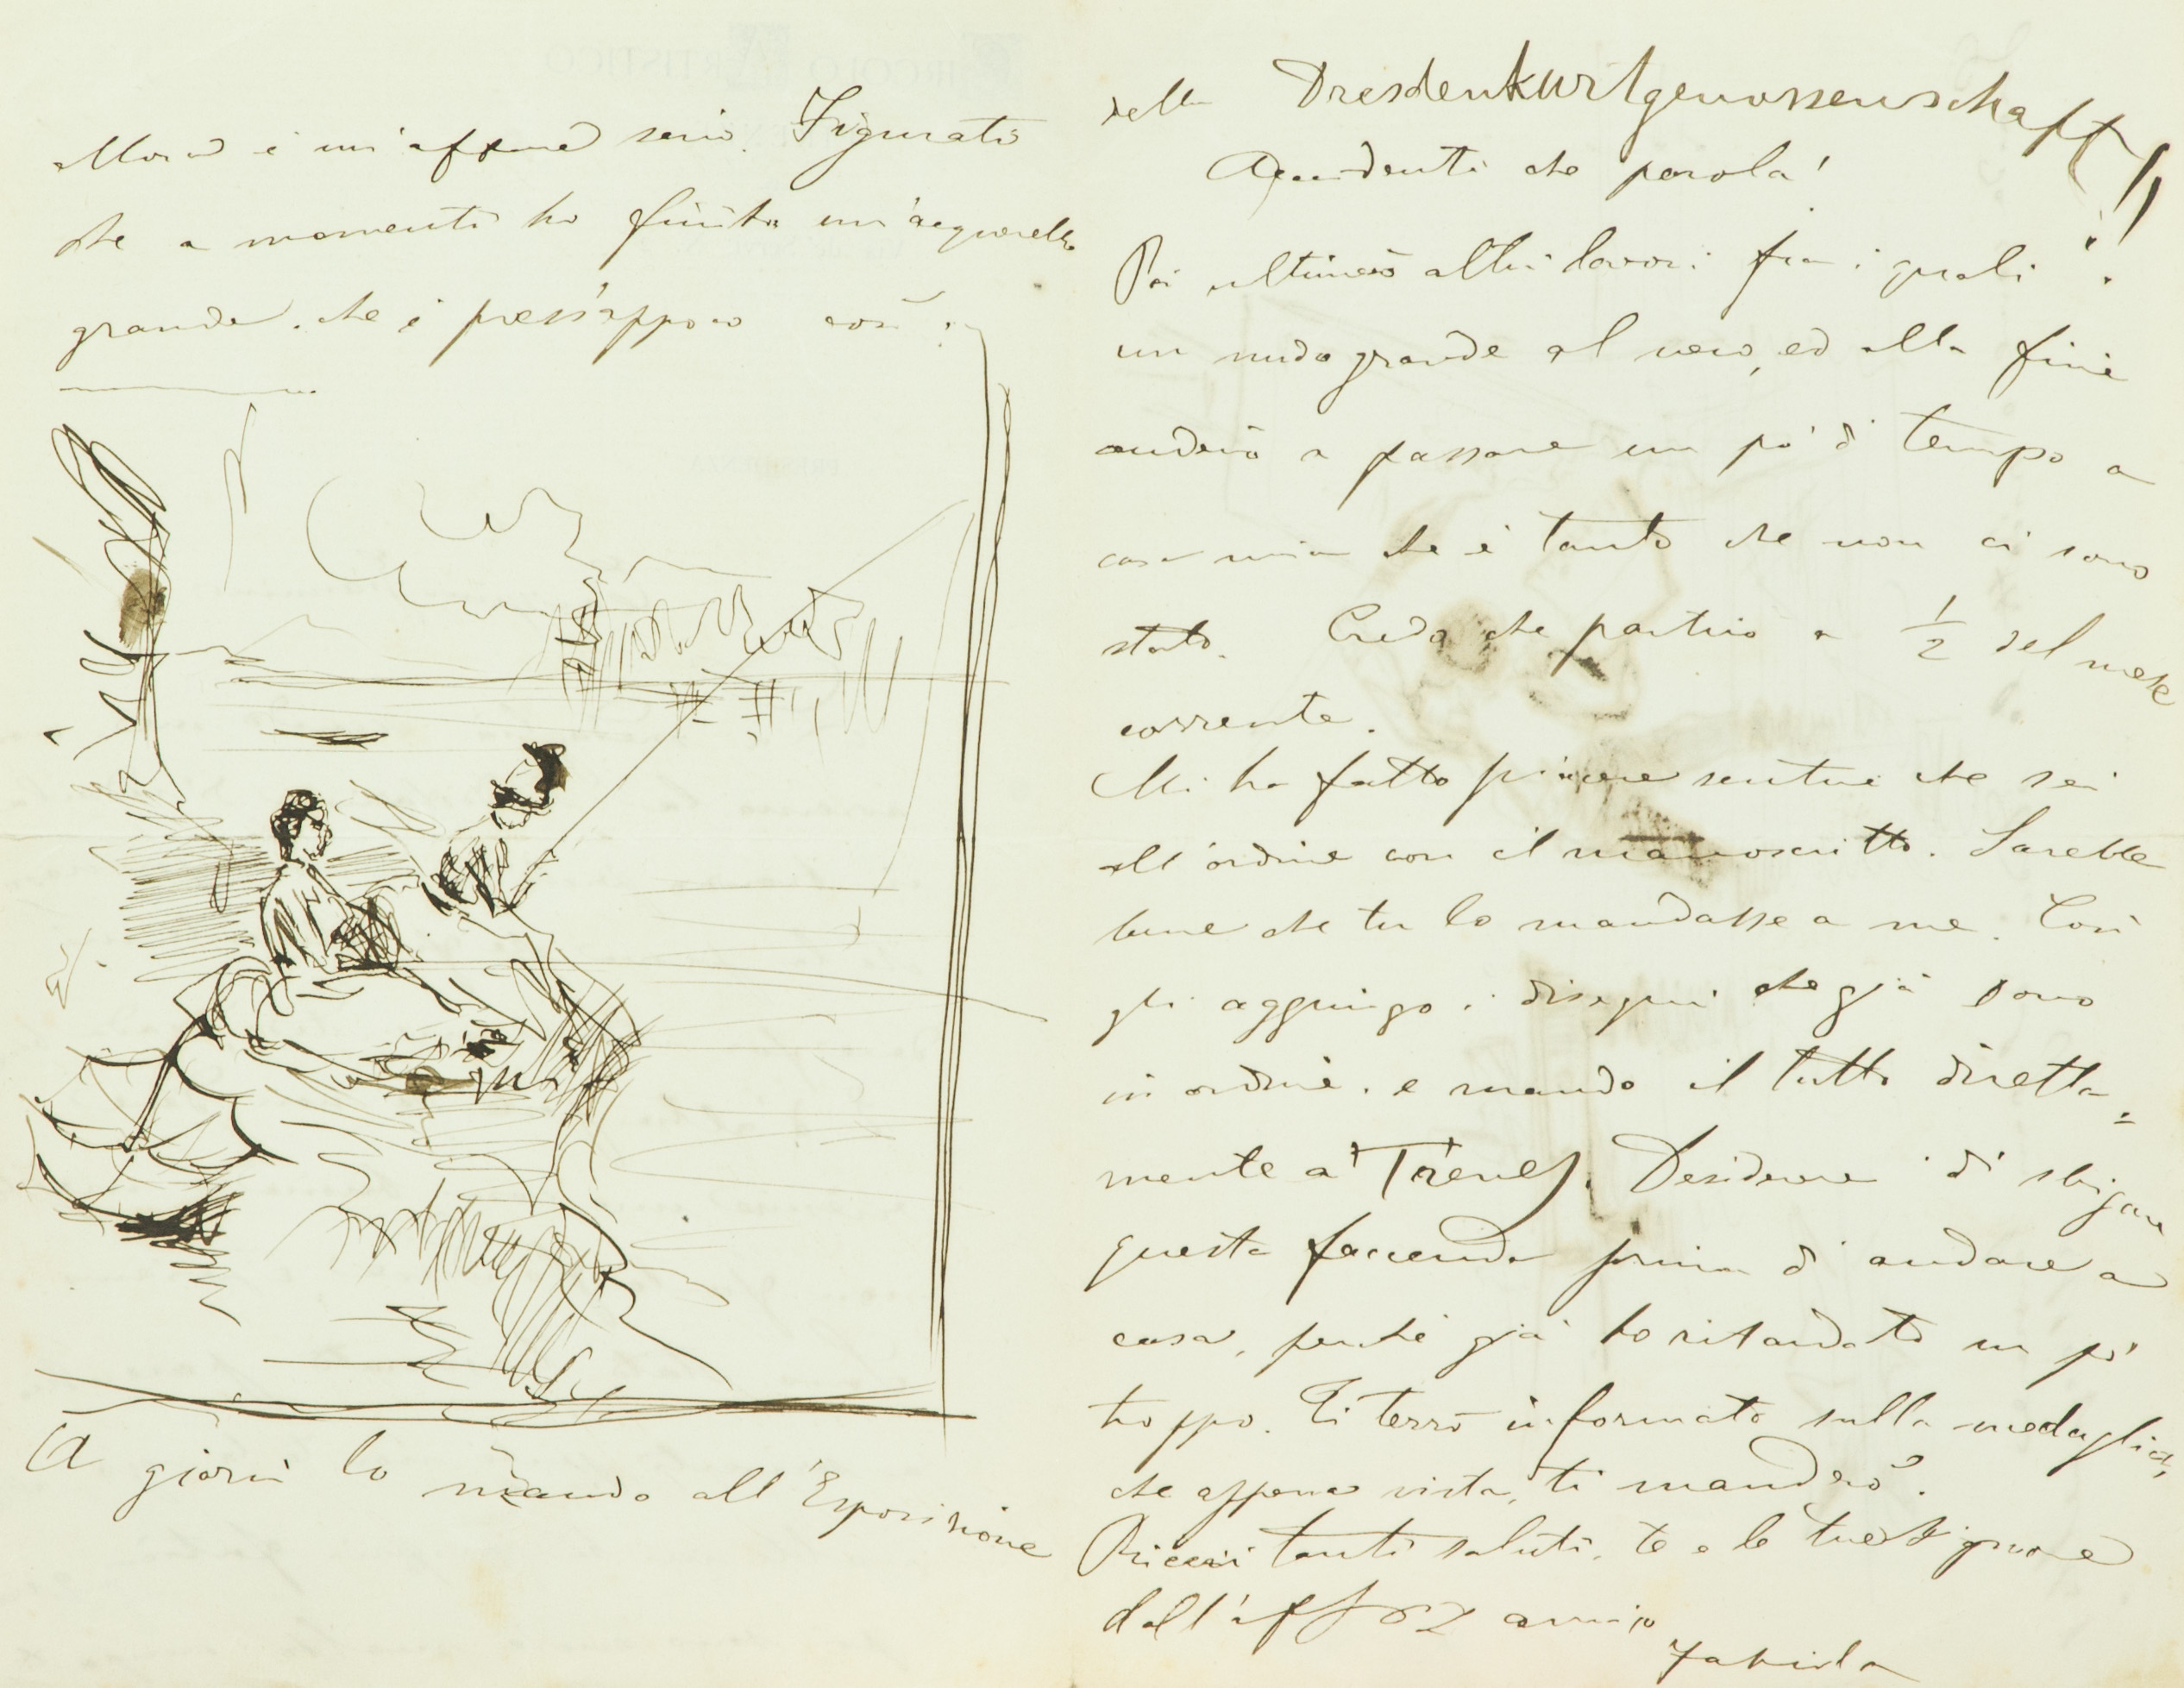 allora è un affare serio. Figurati
che a momenti ho finito un'acquerello
grande. che è press'appoco così:
A giorni lo mando all'Esposizione
della Dresdenkurstgenossenschaft!!
Accidenti che parola!
Poi ultimerò altri lavori fra i quali
un nudo grande al vero, ed alla fine
anderò a passare un pò di tempo a
casa mia che è tanto che non ci sono
stato. Credo che partirò a 1/2 del mese
corrente.
Mi ha fatto piacere sentire che sei
all'ordine con il manoscritto. Sarebbe
bene che tu lo mandasse a me. Così
gli aggiungo i disegni che già sono
in ordine. e mando il tutto diretta=
mente a Treves. Desidererei di sbrigare
questa faccenda prima di andare a
casa, perché già ho ritardato un pò
troppo. Ti terrò informato sulla medaglia,
che appena vista, ti manderò.
Ricevi tanti saluti, te e le tue Signore
dall'aff amico